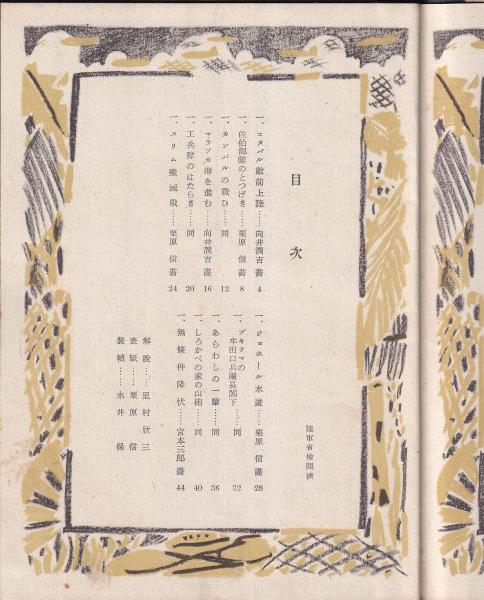 目次
陸軍省檢閲濟
一、コタバル敵前上陸……向井潤吉畫 4
一、佐伯部隊のとつげき……栗原信畫 8
一、カンパルの戰ひ……同 12
一、マラッカ海を進む……向井潤吉畫 16
一、工兵隊のはたらき……同 20
一、スリム殲滅戰……栗原信畫 24
一、ジョホール水道……栗原信畫 28
一、ブキテマの
牟田口兵團長閣下……同 32
一、あらわしの一撃……同 36
一、しろかべの家の山砲……同 40
一、無條件降伏……宮本三郎畫 44
解説……里村欣三
表紙……栗原信
裝幀……永井保